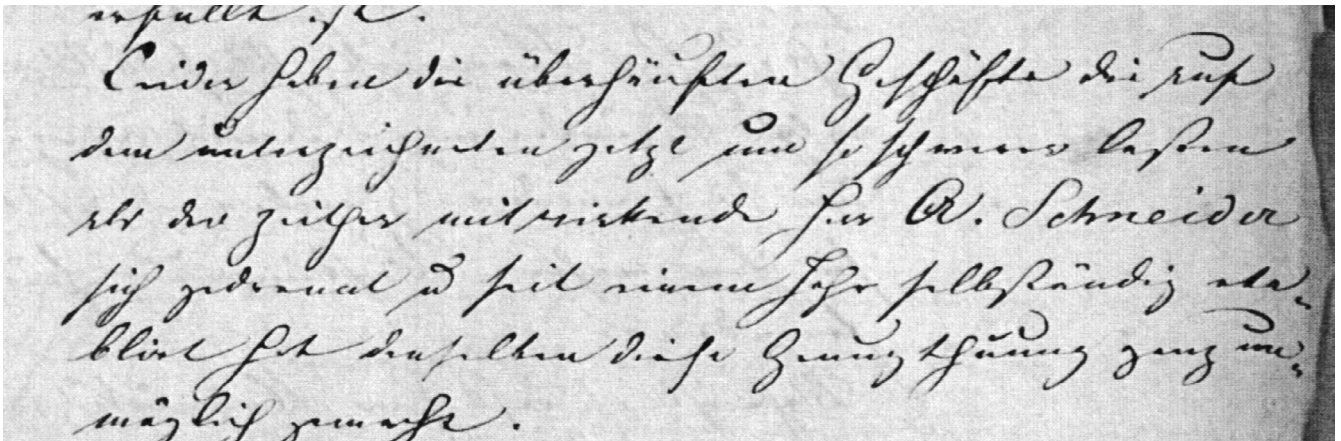 erfüllt ist.
Leider haben die überhäuften Geschäfte die auf
dem unterzeichneten jetzt um so schwerer lasten
als der zeither mitwirkende Herr A. Schneider
sich getrennt u seit einem Jahr selbständig eta-
blirt hat denselben diese Genugthuung ganz un-
möglich gemacht.